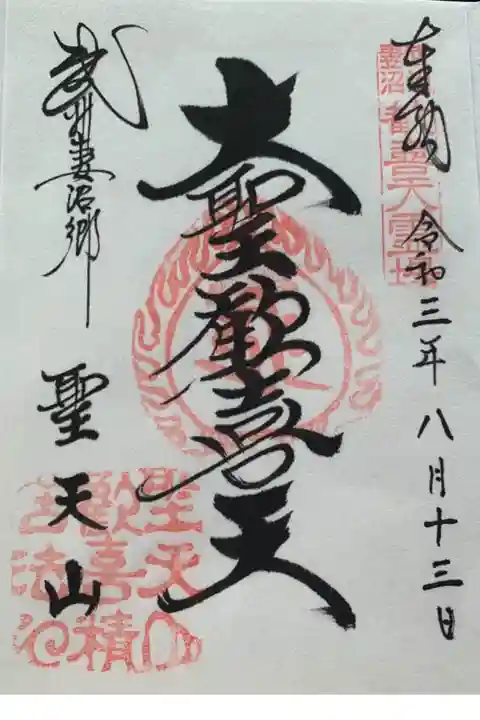 奉拝 令和三年八月十三日
大聖歓喜天
武州妻沼郷
聖天山
妻沼
聖天山
歓喜